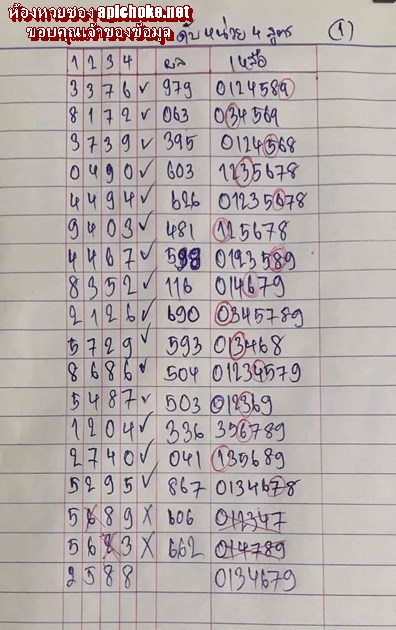 ห้องหวยซอง apichoke.net
ขอบคุณเจ้าของข้อมูล
หน่วย 4 สูตร (1)
1 2 3 4 ผล เหลือ
3 3 7 6 ✓ 979 0124589
8 1 7 2 ✓ 063 034569
3 7 3 9 ✓ 395 0124568
0 4 9 0 ✓ 603 1235678
4 4 9 4 ✓ 626 01235678
9 4 0 3 ✓ 481 125678
4 4 6 7 ✓ 599 0123589
8 3 5 2 ✓ 116 014679
2 1 2 6 ✓ 690 0345789
5 7 2 9 ✓ 593 013468
8 6 8 6 ✓ 504 01234579
5 4 8 7 ✓ 503 012369
1 2 0 4 ✓ 336 356789
2 7 4 0 ✓ 041 135689
5 2 9 5 ✓ 867 0134678
5 6 8 9 X 606 012347
5 6 2 3 X 662 014789
2 5 8 8 0134679